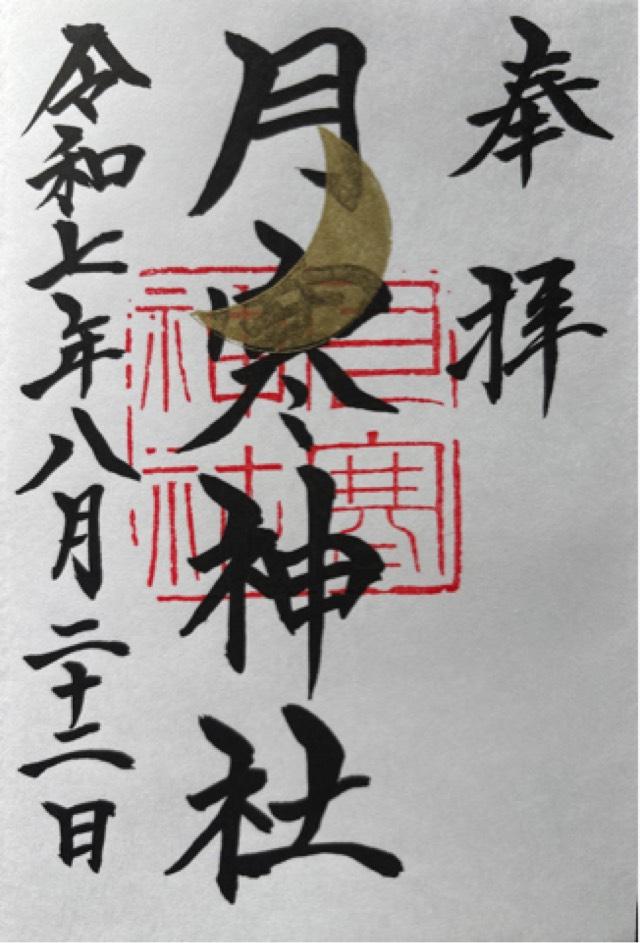 奉拝
月寒神社
月寒神社
令和七年八月二十二日